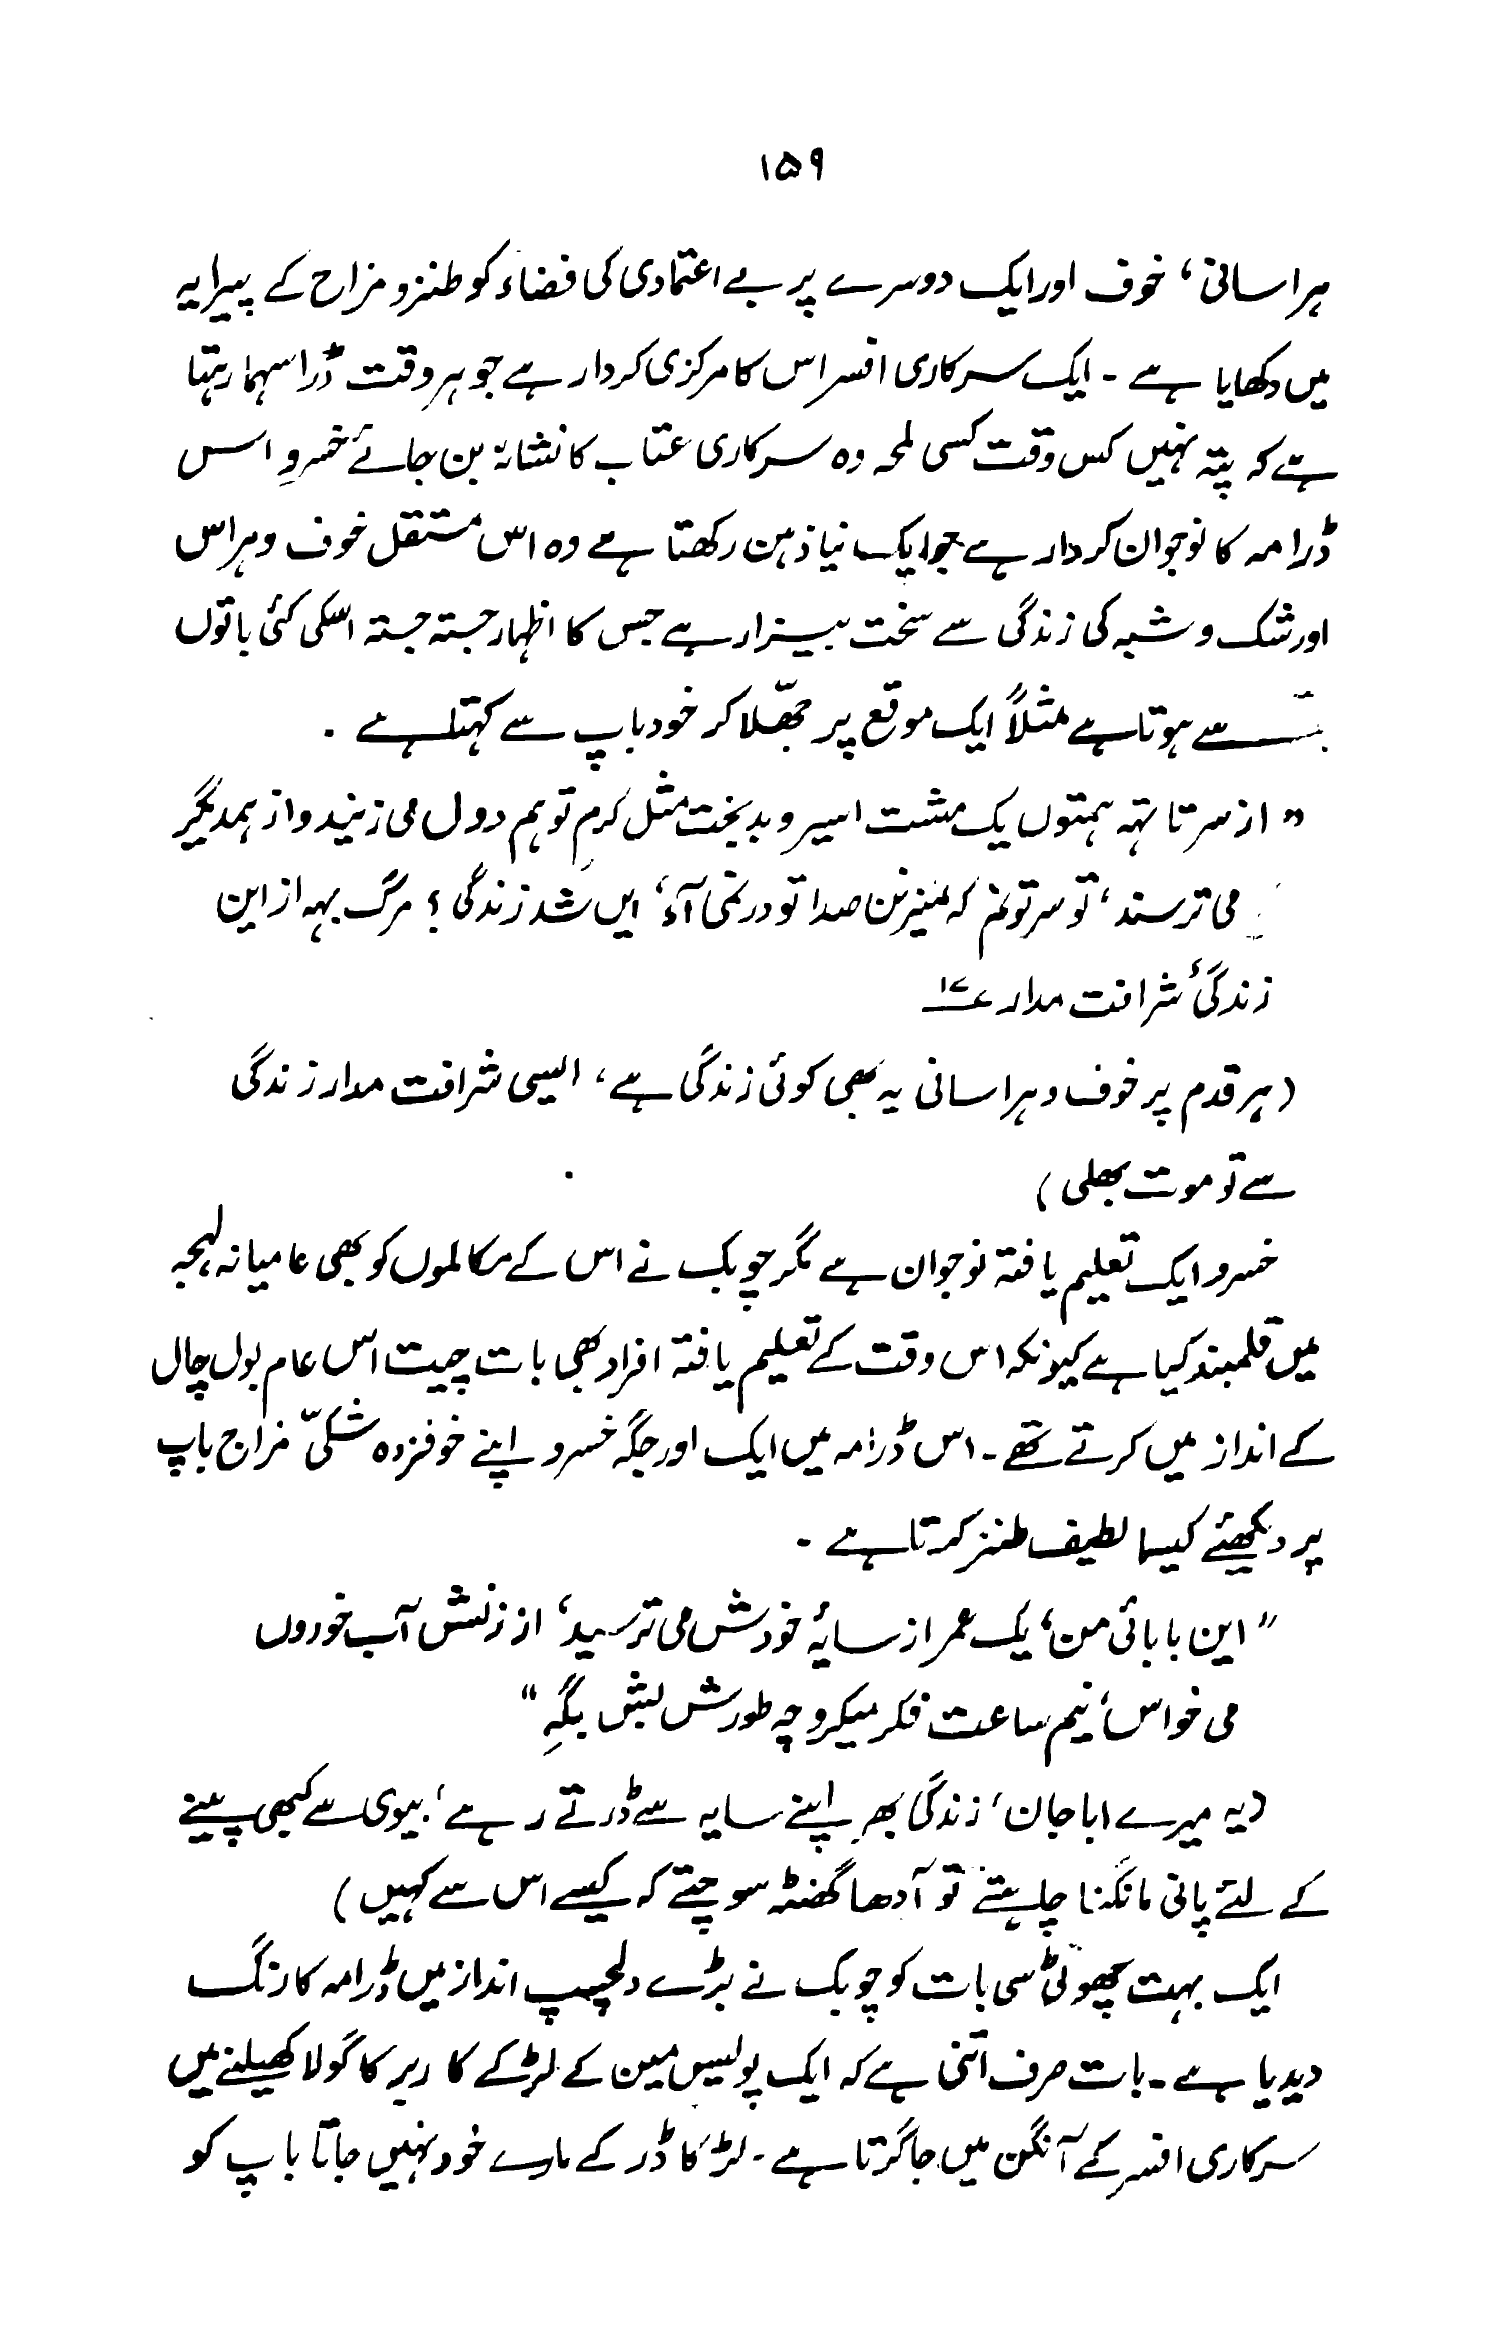 ۱۵۹
ہراسانی، خوف اور ایک دوسرے پر بے اعتمادی کی فضاء کو طنز و مزاح کے پیرایہ
میں دکھایا ہے ۔ ایک سرکاری افسر اس کا مرکزی کردار ہے جو ہر وقت ڈرا سہما رہتا
ہے کہ پتہ نہیں کس وقت کسی لمحہ وہ سرکاری عتاب کا نشانہ بن جائے خسرو اس
ڈرامہ کا نوجوان کردار ہے جو ایک نیا ذہن رکھتا ہے وہ اس مستقل خوف و ہراس
اور شک و شبہ کی زندگی سے سخت بیزار ہے جس کا اظہار جستہ جستہ اسکی کئی باتوں
سے ہوتا ہے مثلاً ایک موقع پر جھلّا کر خود باپ سے کہتا ہے ۔
" از سر تا تہہ ہمتوں یک مشت اسیر و بدبخت مثل کرمِ تو ہم دول می زنید و از ہمدیگر
می ترسند، تو سر تو کہ صدا تو در نمی آء، ایں شد زندگی ؟ مرگ بہہ از این
زندگیٔ شرافت مدار ؎۱۷
(ہر قدم پر خوف و ہراسانی یہ بھی کوئی زندگی ہے، ایسی شرافت مدار زندگی
سے تو موت بھلی)
خسرو ایک تعلیم یافتہ نوجوان ہے مگر چوبک نے اس کے مکالموں کو بھی عامیانہ لہجہ
میں قلمبند کیا ہے کیونکہ اس وقت کے تعلیم یافتہ افراد بھی بات چیت اس عام بول چال
کے انداز میں کرتے تھے ۔ اس ڈرامہ میں ایک اور جگہ خسرو اپنے خوفزدہ شکیّ مزاج باپ
پر دیکھئے کیسا لطیف طنز کرتا ہے ۔
" این بابائی من، یک عمر از سایۂ خودش می ترسید، از زنش آب خوروں
می خواس، نیم ساعت فکر میکرو چہ طورش بہش بگہِ "
(یہ میرے ابا جان، زندگی بھر اپنے سایہ سے ڈرتے رہے، بیوی سے کبھی پینے
کے لئے پانی مانگنا چاہتے تو آدھا گھنٹہ سوچتے کہ کیسے اس سے کہیں)
ایک بہت چھوٹی سی بات کو چوبک نے بڑے دلچسپ انداز میں ڈرامہ کا رنگ
دیدیا ہے ۔ بات صرف اتنی ہے کہ ایک پولیس مین کے لڑکے کا ربر کا گولا کھیلنے میں
سرکاری افسر کے آنگن میں جا گرتا ہے ۔ لڑکا ڈر کے مارے خود نہیں جاتا باپ کو